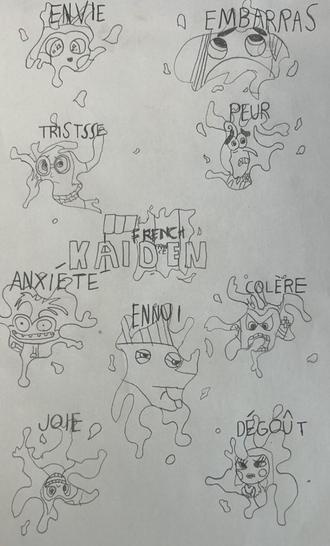 ENVIE
EMBARRAS
TRISTSSE
PEUR
FRENCH
KAIDEN
ANXIÉTÉ
COLÈRE
ENNUI
JOIE
DÉGOÛT